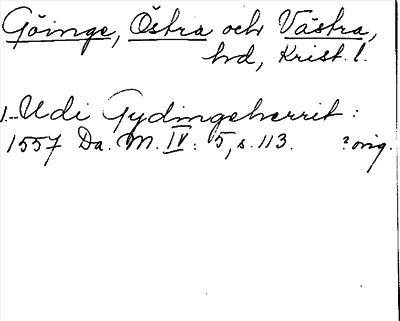 Göinge, Östra och Västra,
hd, Krist. l.
1. Udi Gydingeherrit :
1557 Da. M. IV: 5, s. 113. ? orig.